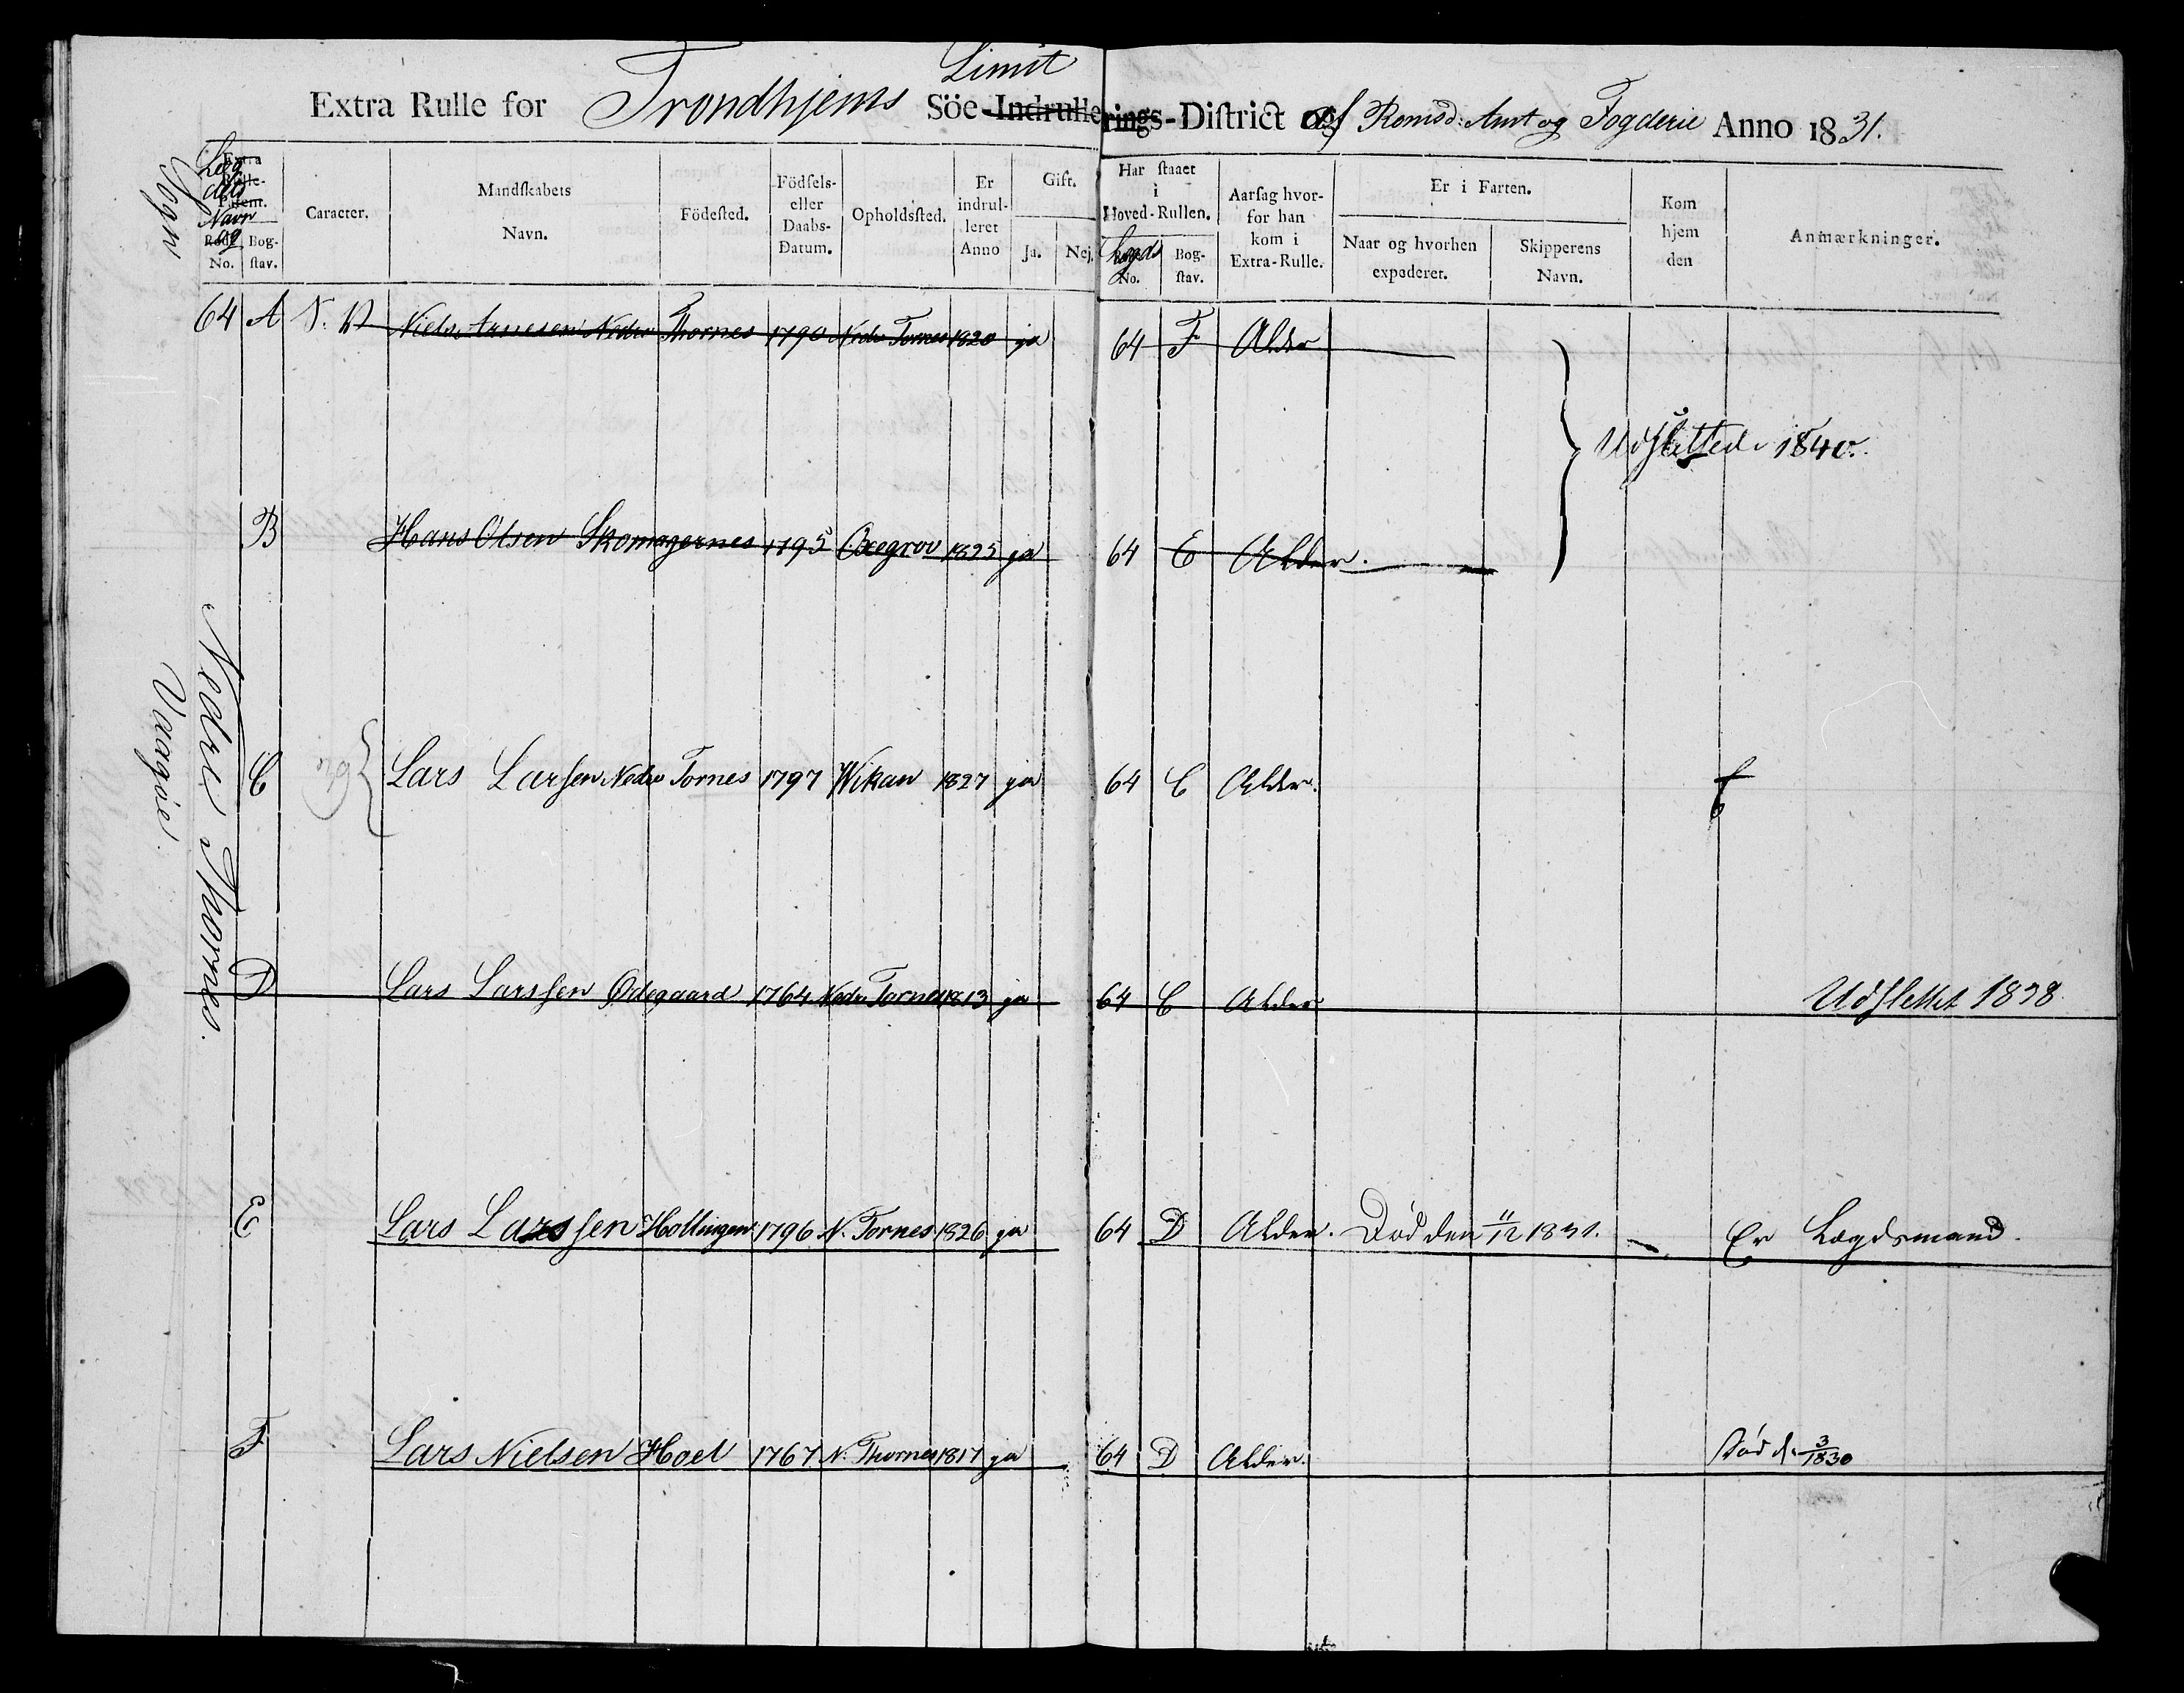 Limit
Extra Rulle for Trondhjems Söe-Indrullerings-District af Romsd: Amt og Fogderie Anno 1831.
Extra Rulle- Legdets Navn og Sogn
Rode No. Bog-stav.
Caracter.
Mandskabets Navn.
Födested.
Födsels- eller Daabs-Datum.
Opholdssted.
Er indrulleret Anno
Gift.
Ja. Nej.
Har staaet i Hoved-Rullen.
Legds No. Bog-stav.
Aarsag hvorfor han kom i Extra-Rulle.
Er i Farten.
Naar og hvorhen expederet.
Skipperens Navn.
Kom hjem den
Anmærkninger.
64 A Niels Arnesen Nedre Thornes 1790 Nedre Tornes 1820 ja 64 F Alder
Udslettede 1840.
B Hans Olsen Skomagernes 1795 Oxegrov 1825 ja 64 E Alder.
Nedre Thornes.
Vaagöe.
C Lars Larsen Nedre Tornes 1797 Wikan 1827 ja 64 C Alder.
D Lars Larssen Ödegaard 1764 Nedre Tornes 1813 ja 64 C Alder Udslettet 1838.
E Lars Larssen Hollingen 1796 N. Tornes 1826 ja 64 D Alder. Död den 11/12 1831. Er Lægdsmand.
F Lars Nielsen Hoel 1767 N. Thornes 1817 ja 64 D Alder. Död d. 3/1830